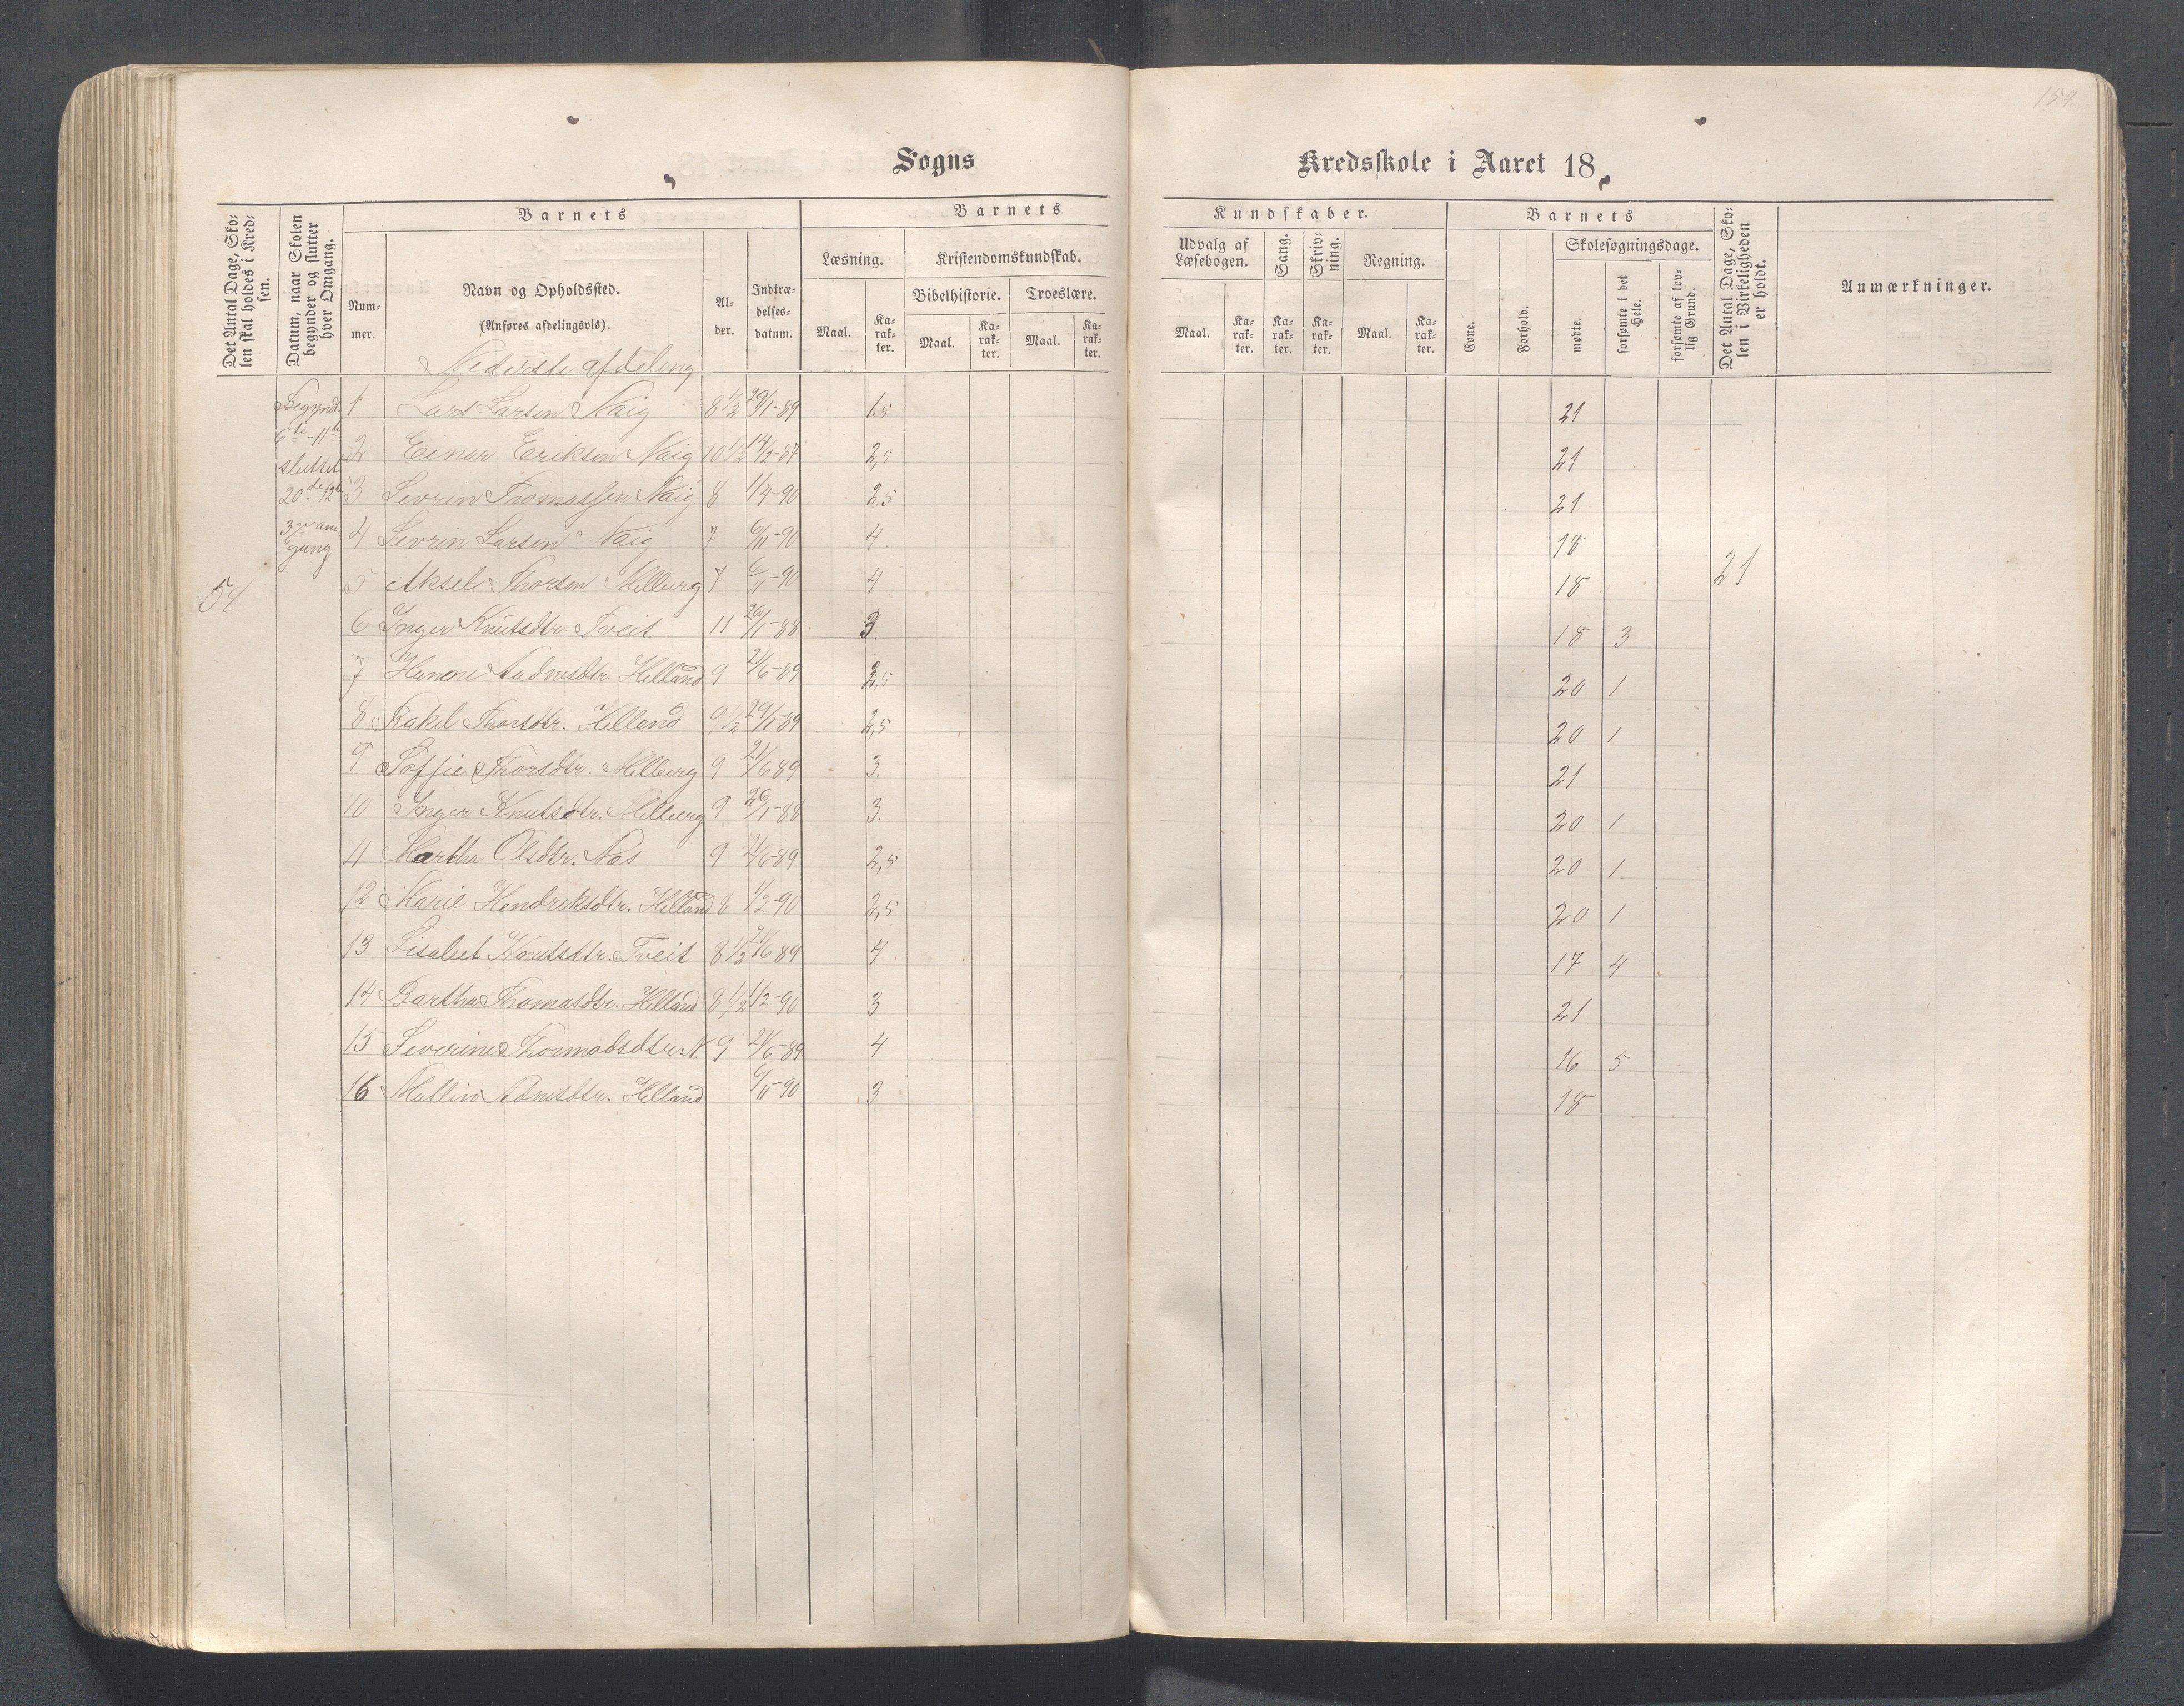 154.
Sogns
Kredsskole i Aaret 18
Det Antal Dage, Sko-
len skal holdes i Kred-
sen.
Datum, naar Skolen
begynder og slutter
hver Omgang.
Barnets
Num-
mer.
Navn og Opholdssted.
(Anføres afdelingsvis).
Al-
der.
Indtræ-
delses-
datum.
Barnets
Læsning.
Maal.
Ka-
rak-
ter.
Kristendomskundskab.
Bibelhistorie.
Maal.
Ka-
rak-
ter.
Troeslære.
Maal.
Ka-
rak-
ter.
Kundskaber.
Udvalg af
Læsebogen.
Maal.
Ka-
rak-
ter.
Sang.
Ka-
rak-
ter.
Skriv-
ning.
Ka-
rak-
ter.
Regning.
Maal.
Ka-
rak-
ter.
Barnets
Evne.
Forhold.
Skolesøgningsdage.
mødte.
forsømte i det
Hele.
forsømte af lov-
lig Grund.
Det Antal Dage, Sko-
len i Virkeligheden
er holdt.
Anmærkninger.
Nederste afdeling
Begyndt
6te-11te
sluttet
20de 12te
gang
54
21
1 Lars Larsen 8 1/2 29/1-89 1.5 21
2 Einar Eriksen 10 1/2 14/2-87 2,5 21
3 Sevrin Thomassen 8 1/4-90 2.5 21
4 Sevrin Larsen 7 6/11-90 4 18
5 Aksel Thorsen 7 6/11-90 4 18
6 Inger Knutsdtr. Tveit 11 26/1-88 3. 18 3
7 Helland 9 21/6-89 2,5 20 1
8 Rakel Thorsdtr. Helland 9 1/2 29/1-89 2,5 20 1
9 Soffie Thorsdtr. 9 21/6 89 3. 21
10 Inger Knutsdtr. 9 26/1-88 3. 20 1
11 Martha Olsdtr. Næs 9 21/6-89 2,5 20 1
12 Marie Hendriksdtr. Helland 8 1/2-90 2,5 20 1
13 Lisabet Knutsdtr. Tveit 8 1/2 21/6 89 4 17 4
14 Bartha Thomasdtr. Helland 8 1/2 1/2-90 3 21
15 Severine 9 21/6-89 4 16 5
16 Mallin Helland 6/11-90 3 18